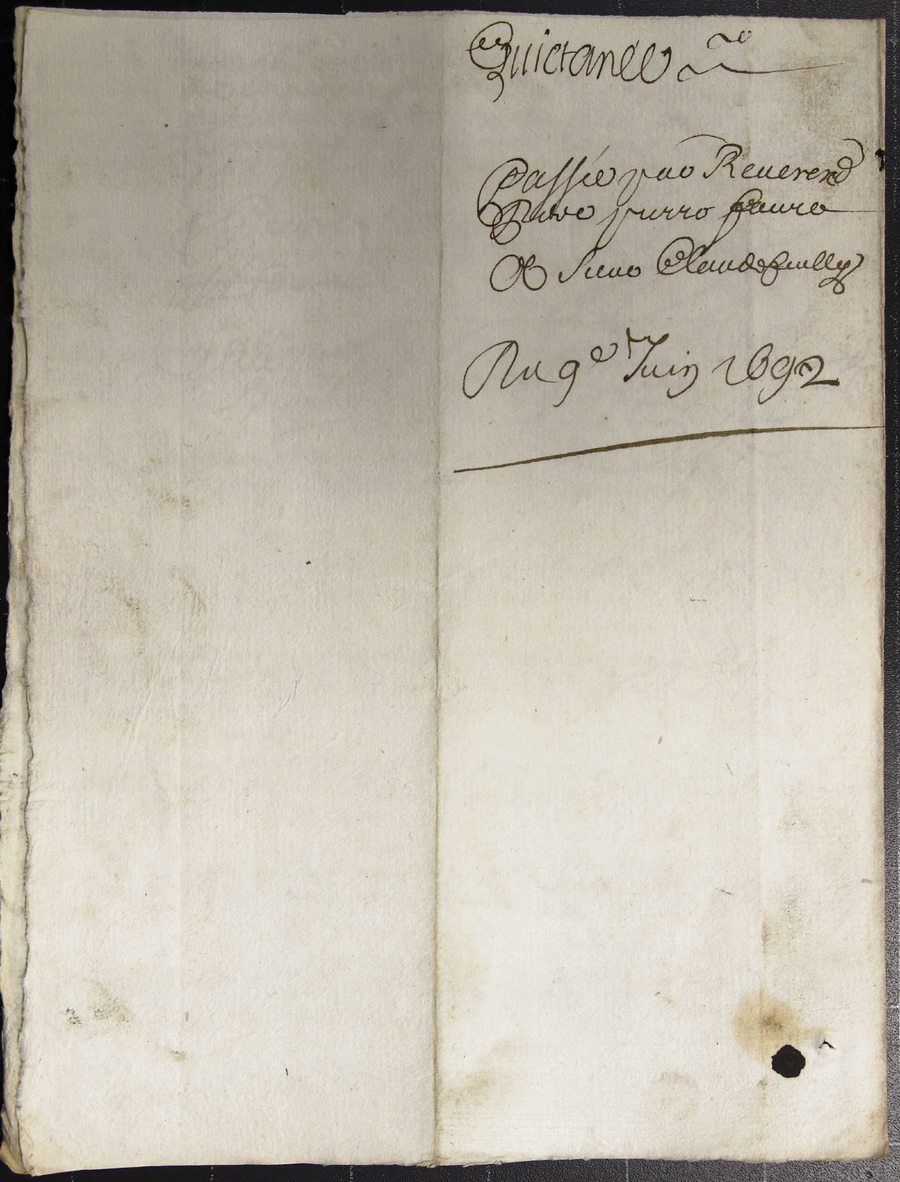 Quictance
Passée par Reverend
pierre faure
A Sieur Claude
Du 9e Juin 1692